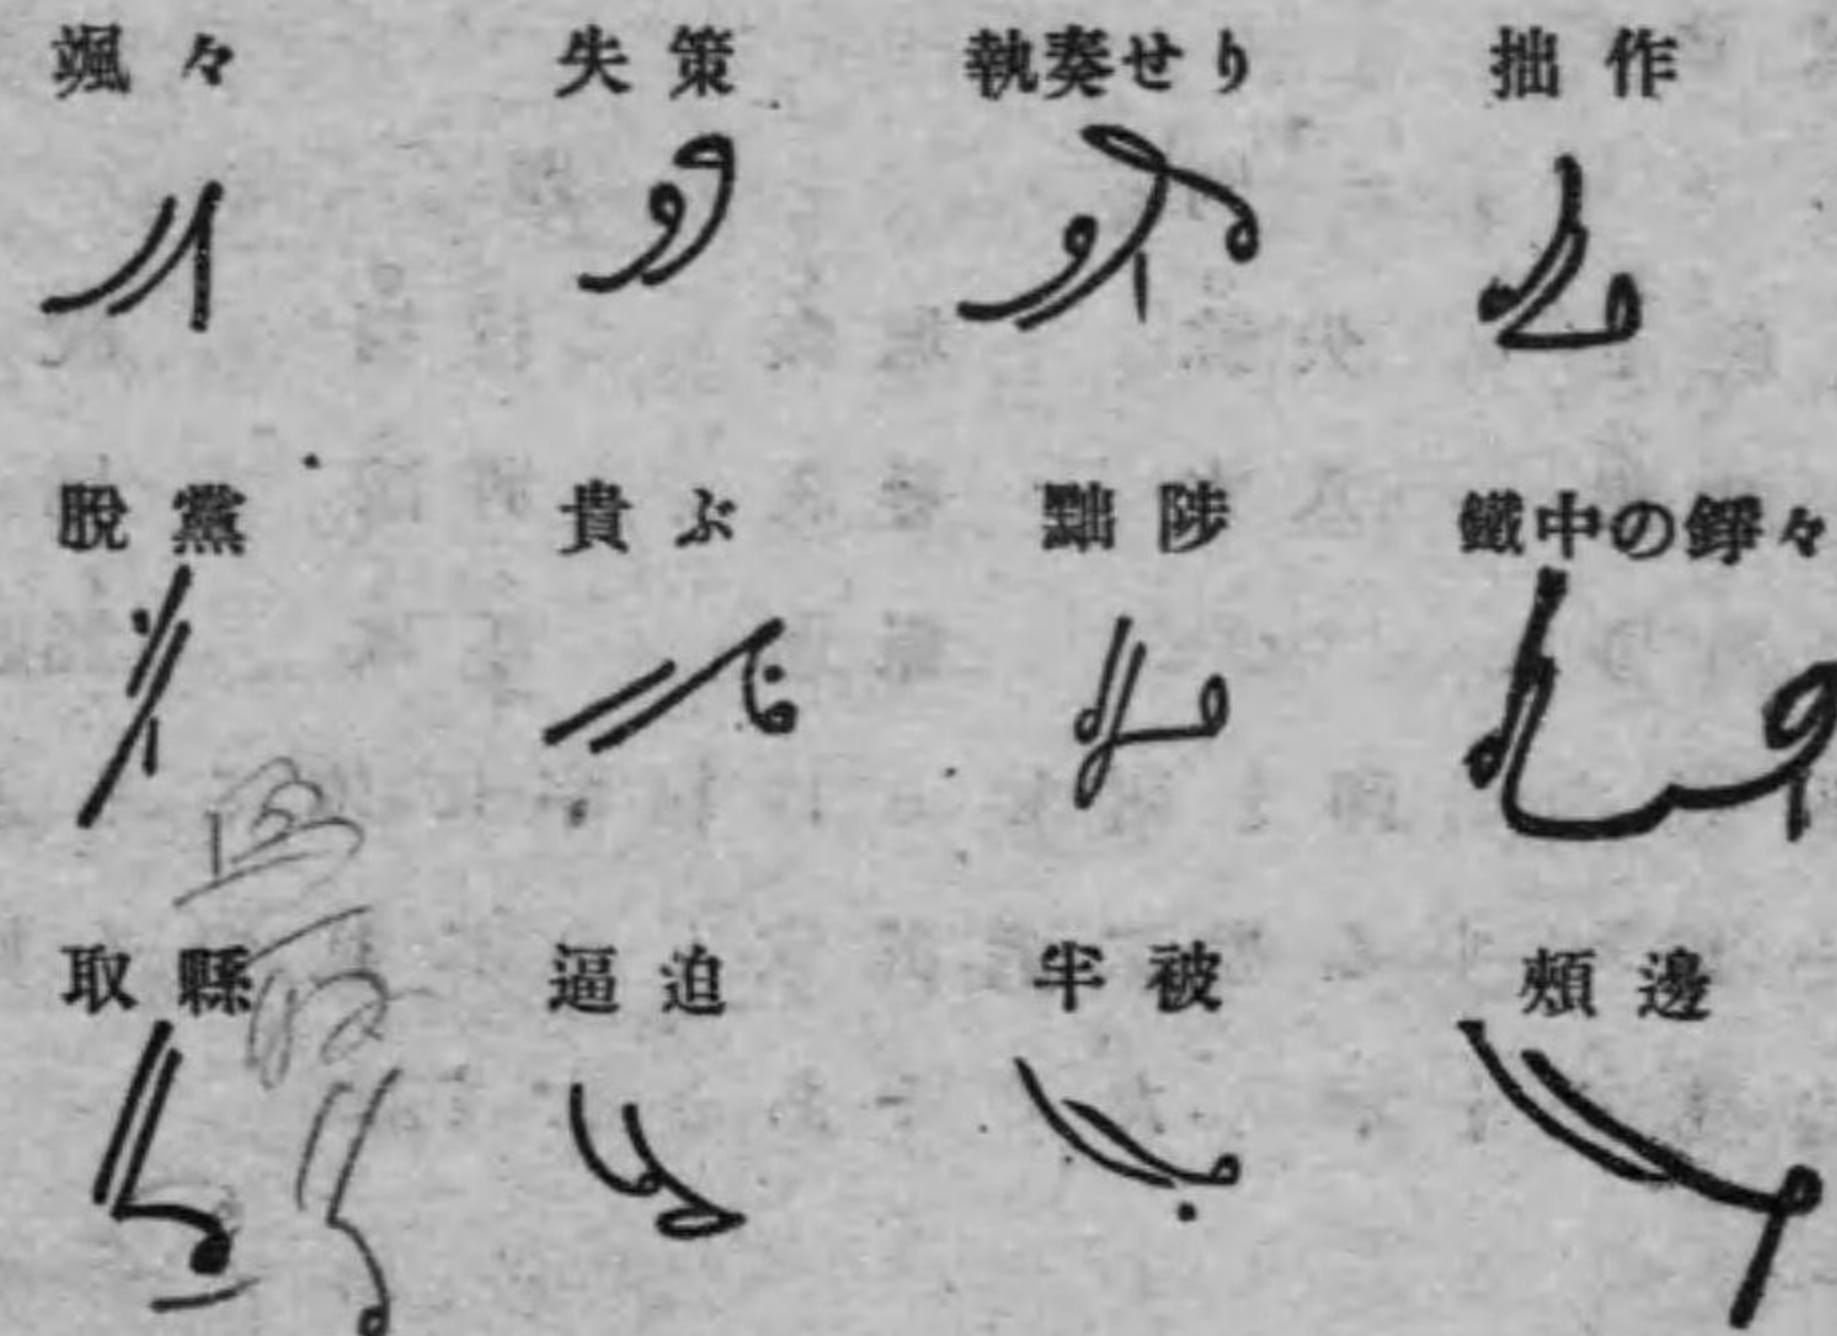 颯々 失策 執奏せり 拙作
脫黨 貴ぶ 黜陟 鐵中の錚々
取縣 逼迫 半被 頰邊